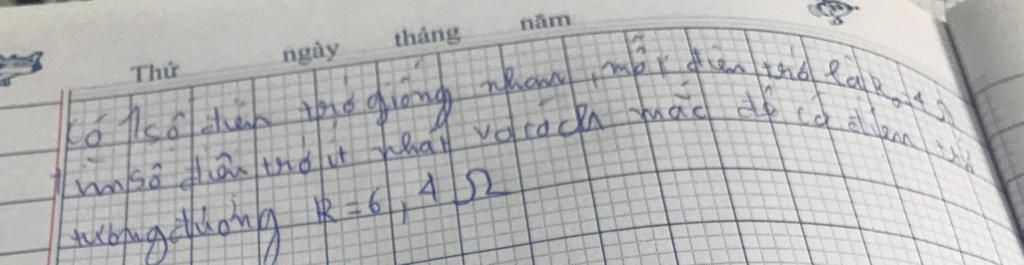 Thứ ngày tháng năm
Có 1 số điện trở giống nhau, mỗi điện trở là R₀=4Ω
Tìm số điện trở ít nhất và cách mắc để có điện trở
tương đương R=6,4Ω